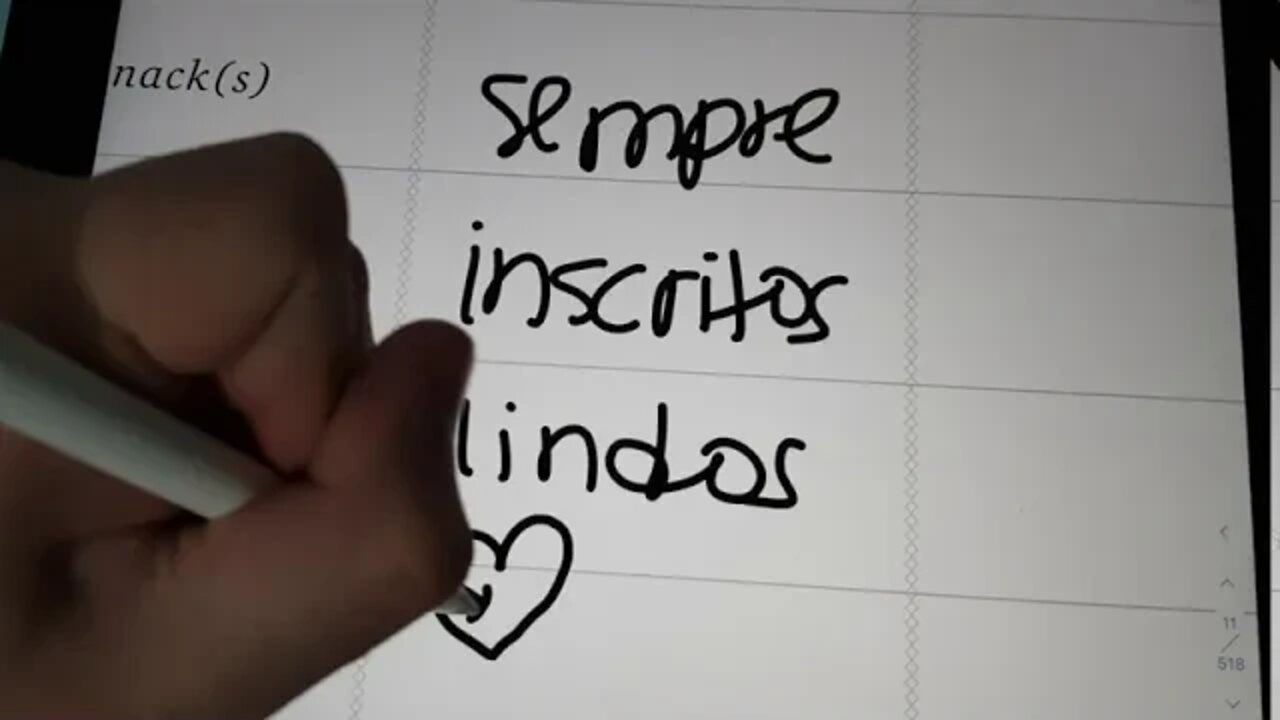 nack(s)
sempre
inscritos
lindos
11
/
518